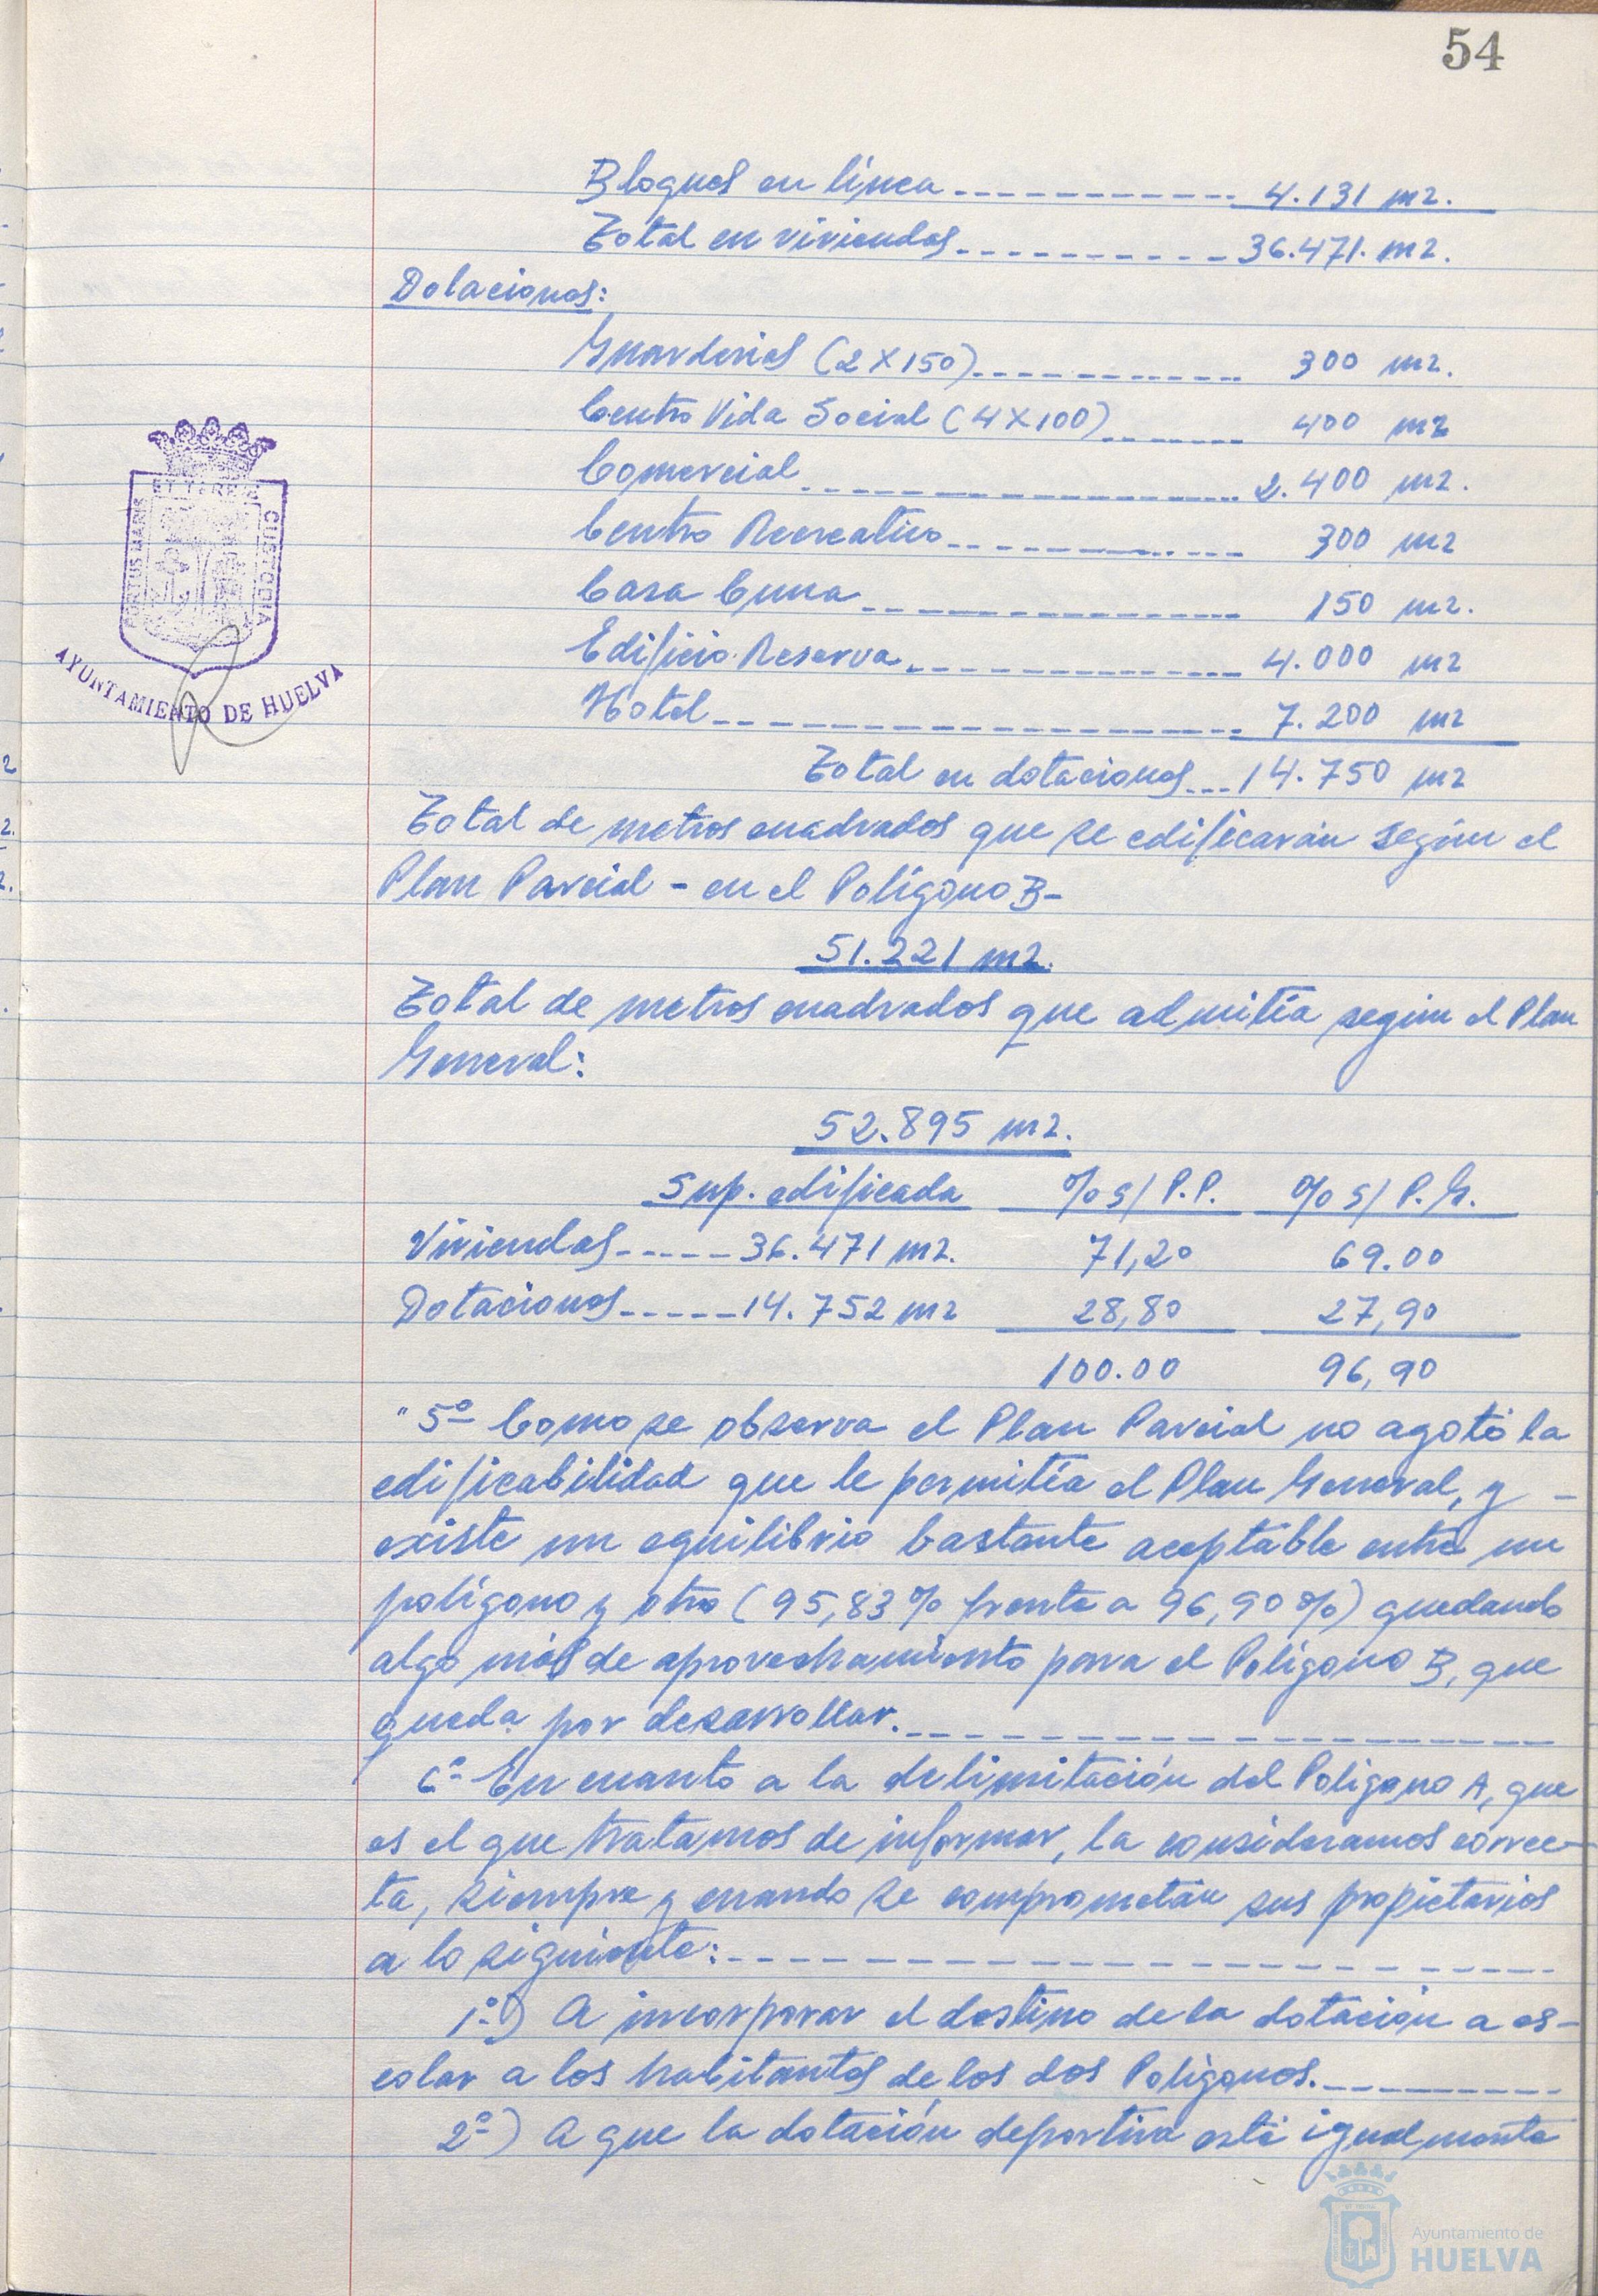 54
Bloques en línea ---------- 4.131 m2.
Total en viviendas ---------- 36.471. m2.
Dotaciones:
Guarderias (2 X 150) ---------- 300 m2.
Centro Vida Social (4 X 100) ------- 400 m2
Comercial ---------- 2.400 m2.
Centro Recreativo ---------- 300 m2
Casa Cuna ---------- 150 m2.
Edificio Reserva ---------- 4.000 m2
Hotel ---------- 7.200 m2
Total en dotaciones --- 14.750 m2
Total de metros cuadrados que se edificarán según el
Plan Parcial - en el Polígono B-
51.221 m2.
Total de metros cuadrados que admitía según el Plan
General:
52.895 m2.
Sup. edificada % s/ P.P. % s/ P.G.
Viviendas ----- 36.471 m2. 71,20 69.00
Dotaciones ----- 14.752 m2 28,80 27,90
100.00 96,90
"5º Como se observa el Plan Parcial no agotó la
edificabilidad que le permitía el Plan General, y -
existe un equilibrio bastante aceptable entre un
polígono y otro (95,83 % frente a 96,90 %) quedando
algo más de aprovechamiento para el Polígono B, que
queda por desarrollar. ----------
6º En cuanto a la delimitación del Polígono A, que
es el que tratamos de informar, la consideramos correc-
ta, siempre y cuando se comprometán sus propietarios
a lo siguiente: ----------
1º) A incorporar el destino de la dotación a es-
colar a los habitantes de los dos Polígonos. ----------
2º) A que la dotación deportiva esté igualmente
PORTUS MARIS
ET TERRE
CUSTODIA
AYUNTAMIENTO DE HUELVA
Ayuntamiento de
HUELVA